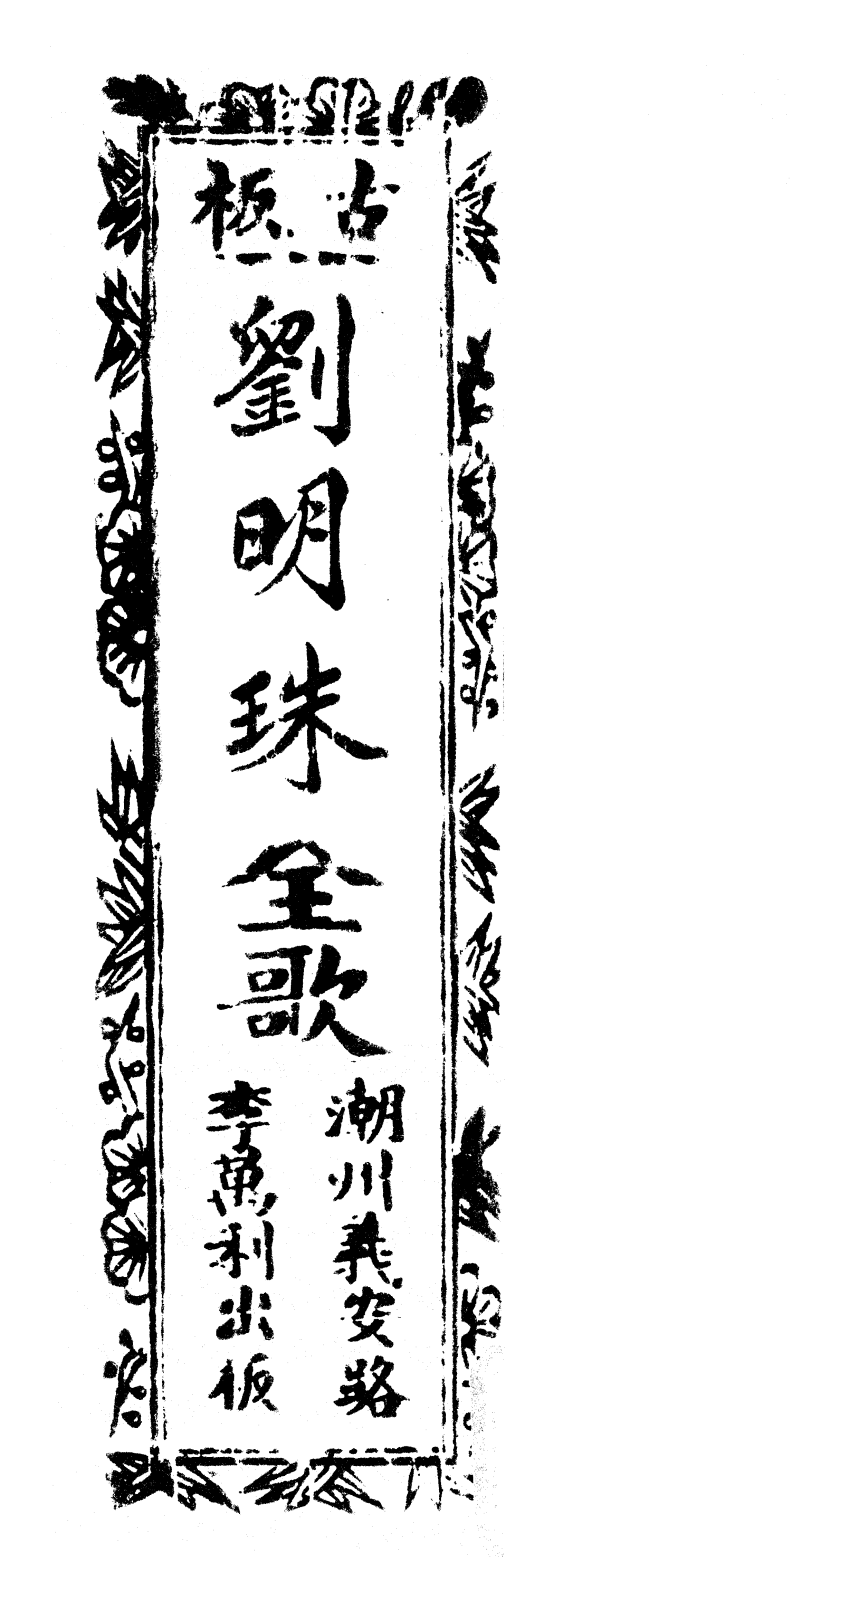 古板
劉明珠全歌
潮州義安路
李萬利出板